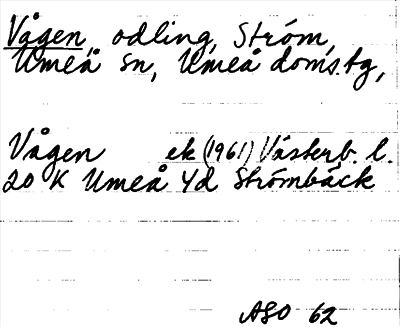 Vågen, odling, Ström,
Umeå sn, Umeå doms.tg,
Vågen ek (1961) Västerb. l.
20 K Umeå 4d Strömbäck
ASO 62